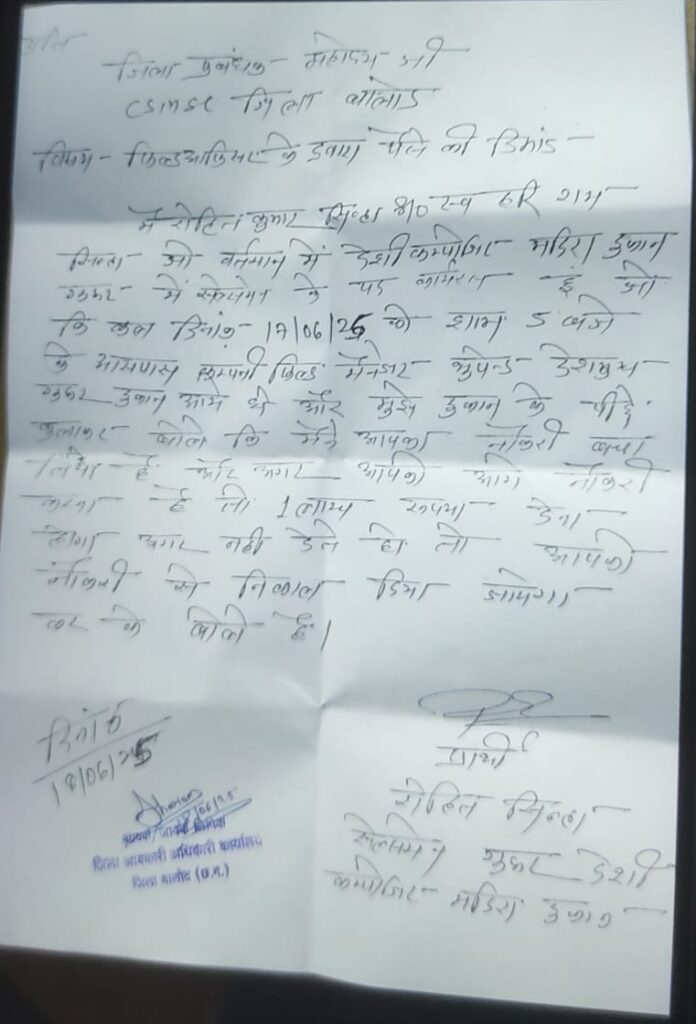 प्रति
जिला प्रबंधक महोदय जी
CSMSC जिला बालोद
विषय - फिल्डआफिसर के द्वारा पैसे की डिमांड
मैं रोहित कुमार सिन्हा S/O स्व हरि राम
सिन्हा जो वर्तमान में देशी कम्पोजिट मदिरा दुकान
गुरुर में सेल्समेन के पद कार्यरत हूं जो
कि कल दिनांक 17/06/25 को शाम 5 बजे
के आसपास कम्पनी फिल्ड मैनेजर भुपेन्द्र देशमुख
गुरुर दुकान आये थे और मुझे दुकान के पीछे
बुलाकर बोले कि मैंने आपका नौकरी बचा
लिया है और अगर आपको आगे नौकरी
करना है तो 1 लाख रूपया देना
होगा अगर नहीं देते हो तो आपको
नौकरी से निकाल दिया जायेगा
कर के बोले है।
दिनांक
18/06/25
प्रार्थी
रोहित सिन्हा
सेल्समेन गुरुर देशी
कम्पोजिट मदिरा दुकान
आवक / जावक लिपिक
जिला आबकारी अधिकारी कार्यालय
जिला बालोद (छ.ग.)